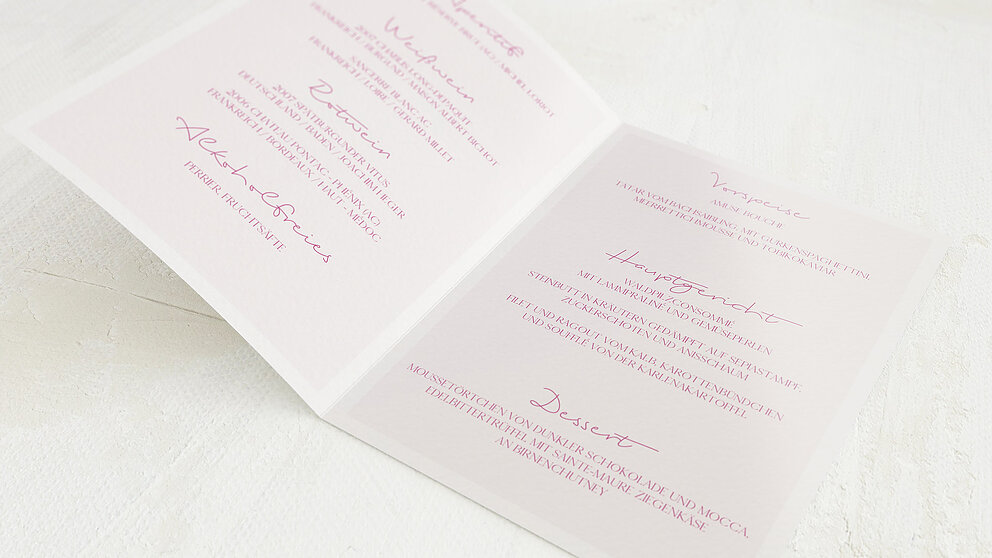 Aperitif
RESERVE BRUT AC / MICHEL LORIOT
Weißwein
2007 CHABLIS LONG-DEPAQUIT
FRANKREICH / BURGUND / MAISON ALBERT BICHOT
SANCERRE BLANC AC
FRANKREICH / LOIRE / GERARD MILLET
Rotwein
2007 SPÄTBURGUNDER VITUS
DEUTSCHLAND / BADEN / JOACHIM HEGER
2006 CHATEAU PONTAC - PHÉNIX (AC)
FRANKREICH / BORDEAUX / HAUT - MEDOC
Alkoholfreies
PERRIER, FRUCHTSÄFTE
Vorspeise
AMUSE BOUCHE
TATAR VOM BACHSAIBLING, MIT GURKENSPAGHETTINI,
MEERRETTICHMOUSSE UND TOBIKOKAVIAR
Hauptgericht
WALDPILZCONSOMMÉ
MIT LAMMPRALINE UND GEMÜSEPERLEN
STEINBUTT IN KRÄUTERN GEDÄMPFT AUF SEPIASTAMPF
ZUCKERSCHOTEN UND ANISSCHAUM
FILET UND RAGOUT VOM KALB, KAROTTENBÜNDCHEN
UND SOUFFLÉ VON DER KARLENAKARTOFFEL
Dessert
MOUSSETÖRTCHEN VON DUNKLER SCHOKOLADE UND MOCCA,
EDELBITTERTRÜFFEL MIT SAINTE-MAURE ZIEGENKÄSE
AN BIRNENCHUTNEY